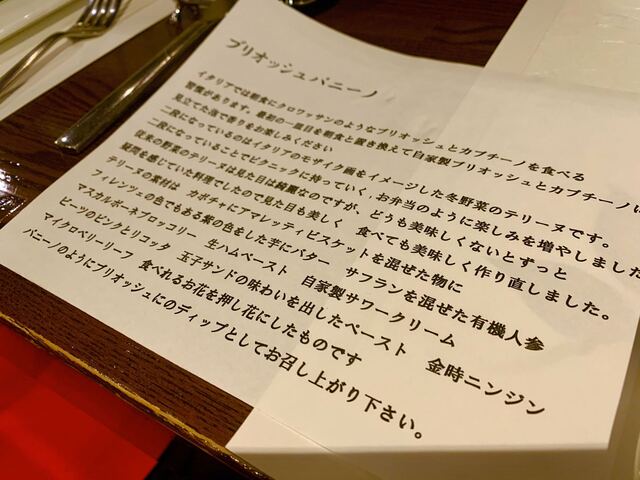 ブリオッシュパニーノ
イタリアでは朝食にクロワッサンのようなブリオッシュとカプチーノを食べる
習慣があります。最初の一皿目を朝食と置き換えて自家製ブリオッシュとカプチーノに
見立てた泡で香りをお楽しみください
二段になっているのはイタリアのモザイク画をイメージした冬野菜のテリーヌです。
二段になっていることでピクニックに持っていく、お弁当のように楽しみを増やしました
従来の野菜のテリーヌは見た目は綺麗なのですが、どうも美味しくないとずっと
疑問を感じていた料理でしたので見た目も美しく 食べても美味しく作り直しました。
テリーヌの素材は カボチャにアマレッティビスケットを混ぜた物に
フィレンツェの色でもある紫の色をした芋にバター サフランを混ぜた有機人参
マスカルポーネブロッコリー 生ハムペースト 自家製サワークリーム
ビーツのピンクとリコッタ 玉子サンドの味わいを出したペースト 金時ニンジン
マイクロベリーリーフ 食べれるお花を押し花にしたものです
パニーノのようにブリオッシュにのディップとしてお召し上がり下さい。